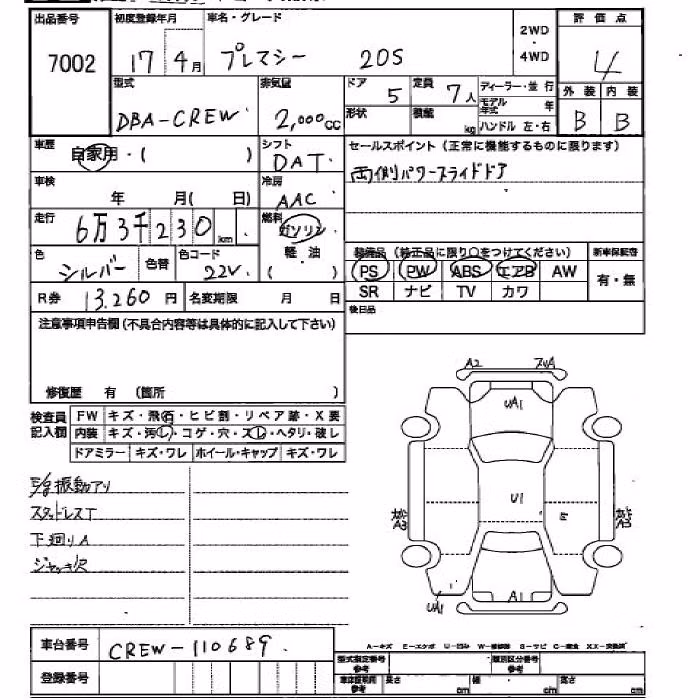 出品番号 初度登録年月 車名・グレード 2WD・4WD 評価点
7002 17 4月 プレマシー 20S 4
型式 排気量 ドア 5 定員 7人 ディーラー・並行 外装 内装
DBA-CREW 2,000cc 形状 積載 kg モデル年式 年 B B
ハンドル 左・右
車歴 自家用・( ) シフト DAT セールスポイント(正常に機能するものに限ります)
車検 年 月( 日) 冷房 AAC 両側パワースライドドア
走行 6万3千230km 燃料 ガソリン 軽・油 ( )
色 シルバー 色替 色コード 22V 装備品(純正品に限り○をつけてください) 新車保証書
PS PW ABS エアB AW 有・無
R券 13,260円 名変期限 月 日 SR ナビ TV カワ
注意事項申告欄(不具合内容等は具体的に記入して下さい) 後日品
修復歴 有 (箇所 )
検査員記入欄 FW キズ・飛石・ヒビ割・リペア跡・X要
内装 キズ・汚レ・コゲ・穴・スレ・ヘタリ・破レ
ドアミラー キズ・ワレ ホイール・キャップ キズ・ワレ
振動アリ
スタッドレスT
下廻りA
ジャッキ欠
A2
UA1
U1
E
A3 A3
A1
UA1
車台番号 CREW-110689
A-キズ E-エクボ U-凹み W-補修跡 S-サビ C-腐食 XX-交換済
登録番号 型式指定番号 参考 類別区分番号 参考
車庫証明用 参考 長さ cm 幅 cm 高さ cm